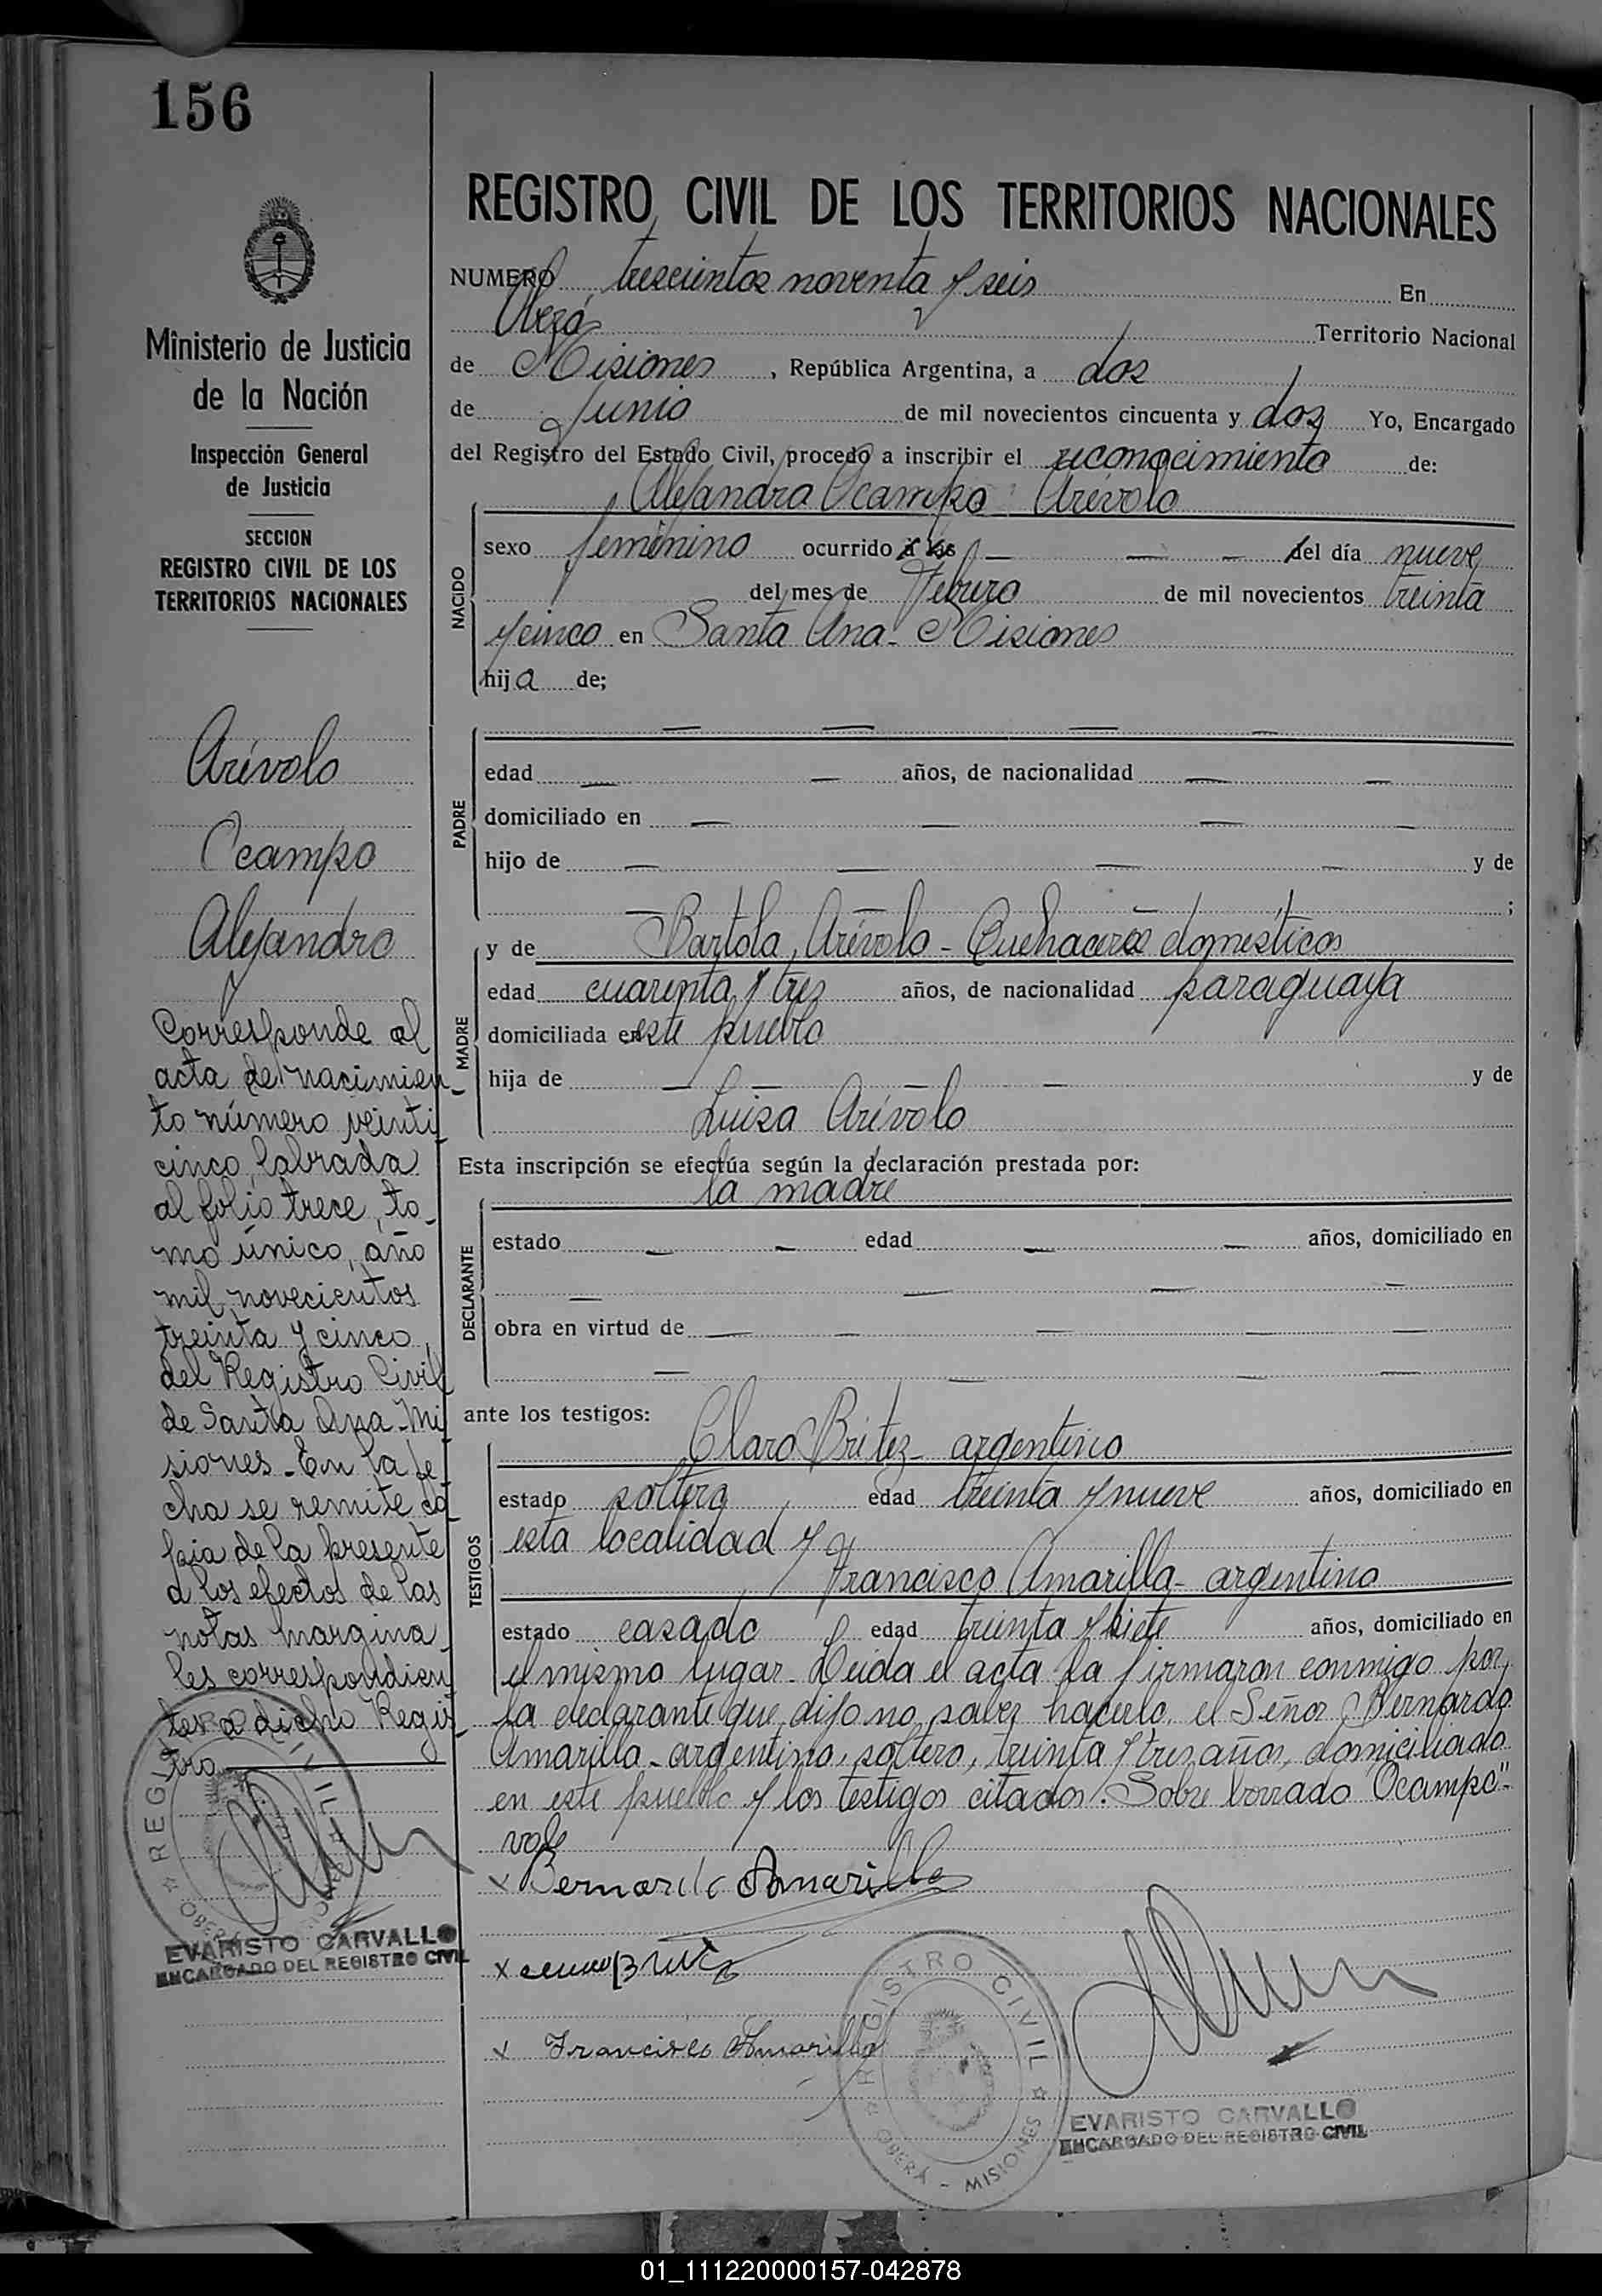 156
REGISTRO CIVIL DE LOS TERRITORIOS NACIONALES
NUMERO trescientos noventa y seis En
Oberá Territorio Nacional
de Misiones, República Argentina, a dos
de Junio de mil novecientos cincuenta y dos Yo, Encargado
del Registro del Estado Civil, procedo a inscribir el reconocimiento de:
Alejandra Ocampo Arévolo
NACIDO
sexo femenino ocurrido a las — — — del día nueve
del mes de Febrero de mil novecientos treinta
y cinco en Santa Ana - Misiones
hija de;
PADRE
— — — —
edad — — años, de nacionalidad — —
domiciliado en — — — —
hijo de — — — — y de
— — — ;
MADRE
y de Bartola Arévolo - Quehaceres domésticos
edad cuarenta y tres años, de nacionalidad paraguaya
domiciliada en este pueblo
hija de — — — — y de
Luisa Arévolo
Esta inscripción se efectúa según la declaración prestada por:
la madre
DECLARANTE
estado — — edad — — años, domiciliado en
— — — —
obra en virtud de — — — — —
— — — —
ante los testigos:
TESTIGOS
Claro Britez - argentino
estado soltero edad treinta y nueve años, domiciliado en
esta localidad y
Francisco Amarilla - argentino
estado casado edad treinta y siete años, domiciliado en
el mismo lugar - Leida el acta la firmaron conmigo por
la declarante que dijo no saber hacerlo, el Señor Bernardo
Amarilla - argentino, soltero, treinta y tres años, domiciliado
en este pueblo y los testigos citados. Sobre borrado "Ocampo"-
vale
x Bernardo Amarilla
x Britez
x Francisco Amarilla
REGISTRO CIVIL
OBERÁ - MISIONES
EVARISTO CARVALLO
ENCARGADO DEL REGISTRO CIVIL
Ministerio de Justicia
de la Nación
Inspección General
de Justicia
SECCION
REGISTRO CIVIL DE LOS
TERRITORIOS NACIONALES
Arévolo
Ocampo
Alejandra
Corresponde al
acta de nacimien-
to número veinti
cinco, labrada
al folio trece, to-
mo único, año
mil novecientos
treinta y cinco,
del Registro Civil
de Santa Ana - Mi
siones - En la fe
cha se remite co
pia de la presente
a los efectos de las
notas margina-
les correspondien
tes a dicho Regis-
tro
REGISTRO CIVIL
OBERÁ
EVARISTO CARVALLO
ENCARGADO DEL REGISTRO CIVIL
01_111220000157-042878